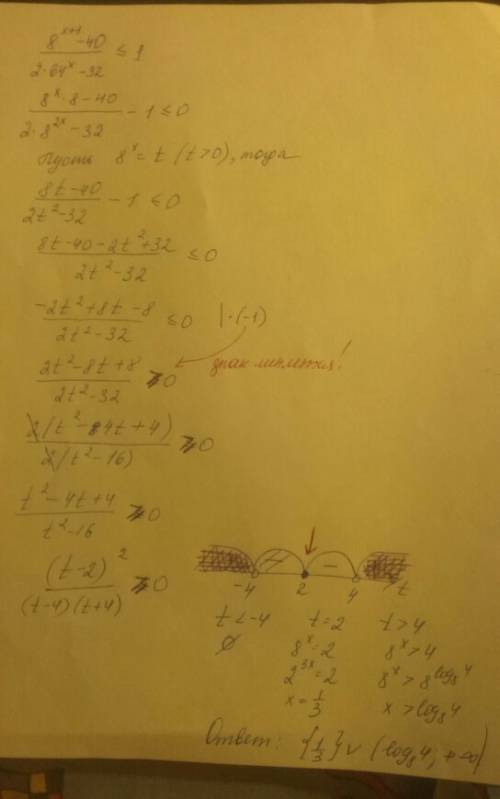 8^(x+1) - 40 / 2·64^x - 32 ≤ 1
8^x·8 - 40 / 2·8^(2x) - 32 - 1 ≤ 0
Пусть 8^x = t (t>0), тогда
8t-40 / 2t²-32 - 1 ≤ 0
8t-40-2t²+32 / 2t²-32 ≤ 0
-2t²+8t-8 / 2t²-32 ≤ 0 |·(-1)
знак меняется!
2t²-8t+8 / 2t²-32 ≥ 0
2(t²-4t+4) / 2(t²-16) ≥ 0
t²-4t+4 / t²-16 ≥ 0
(t-2)² / (t-4)(t+4) ≥ 0
- -
-4 2 4 t
t<-4 t=2 t>4
∅ 8^x=2 8^x>4
2^(3x)=2 8^x>8^(log₈4)
x=1/3 x>log₈4
Ответ: {1/3}∪(log₈4; +∞)